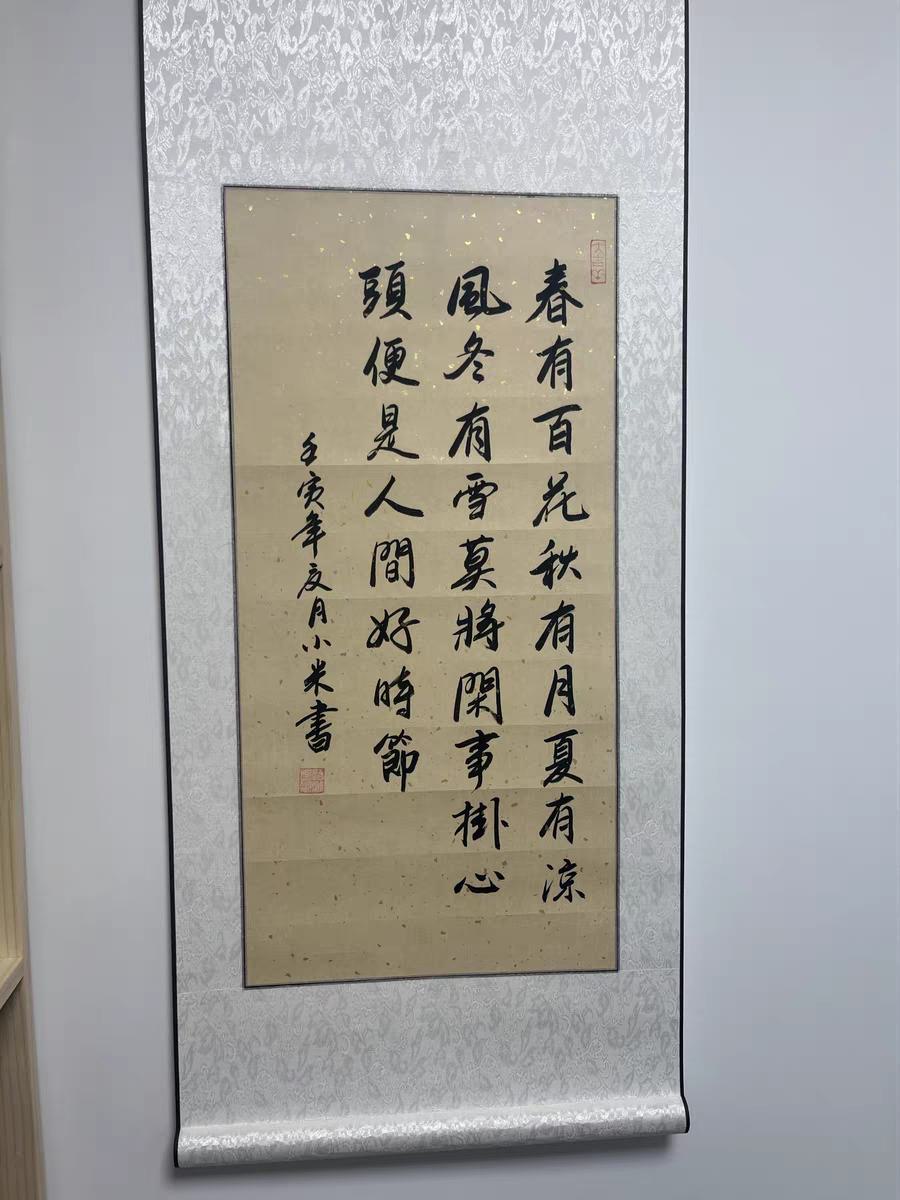 春有百花秋有月夏有涼
風冬有雪莫將閑事掛心
頭便是人間好時節
壬寅年亥月小米書